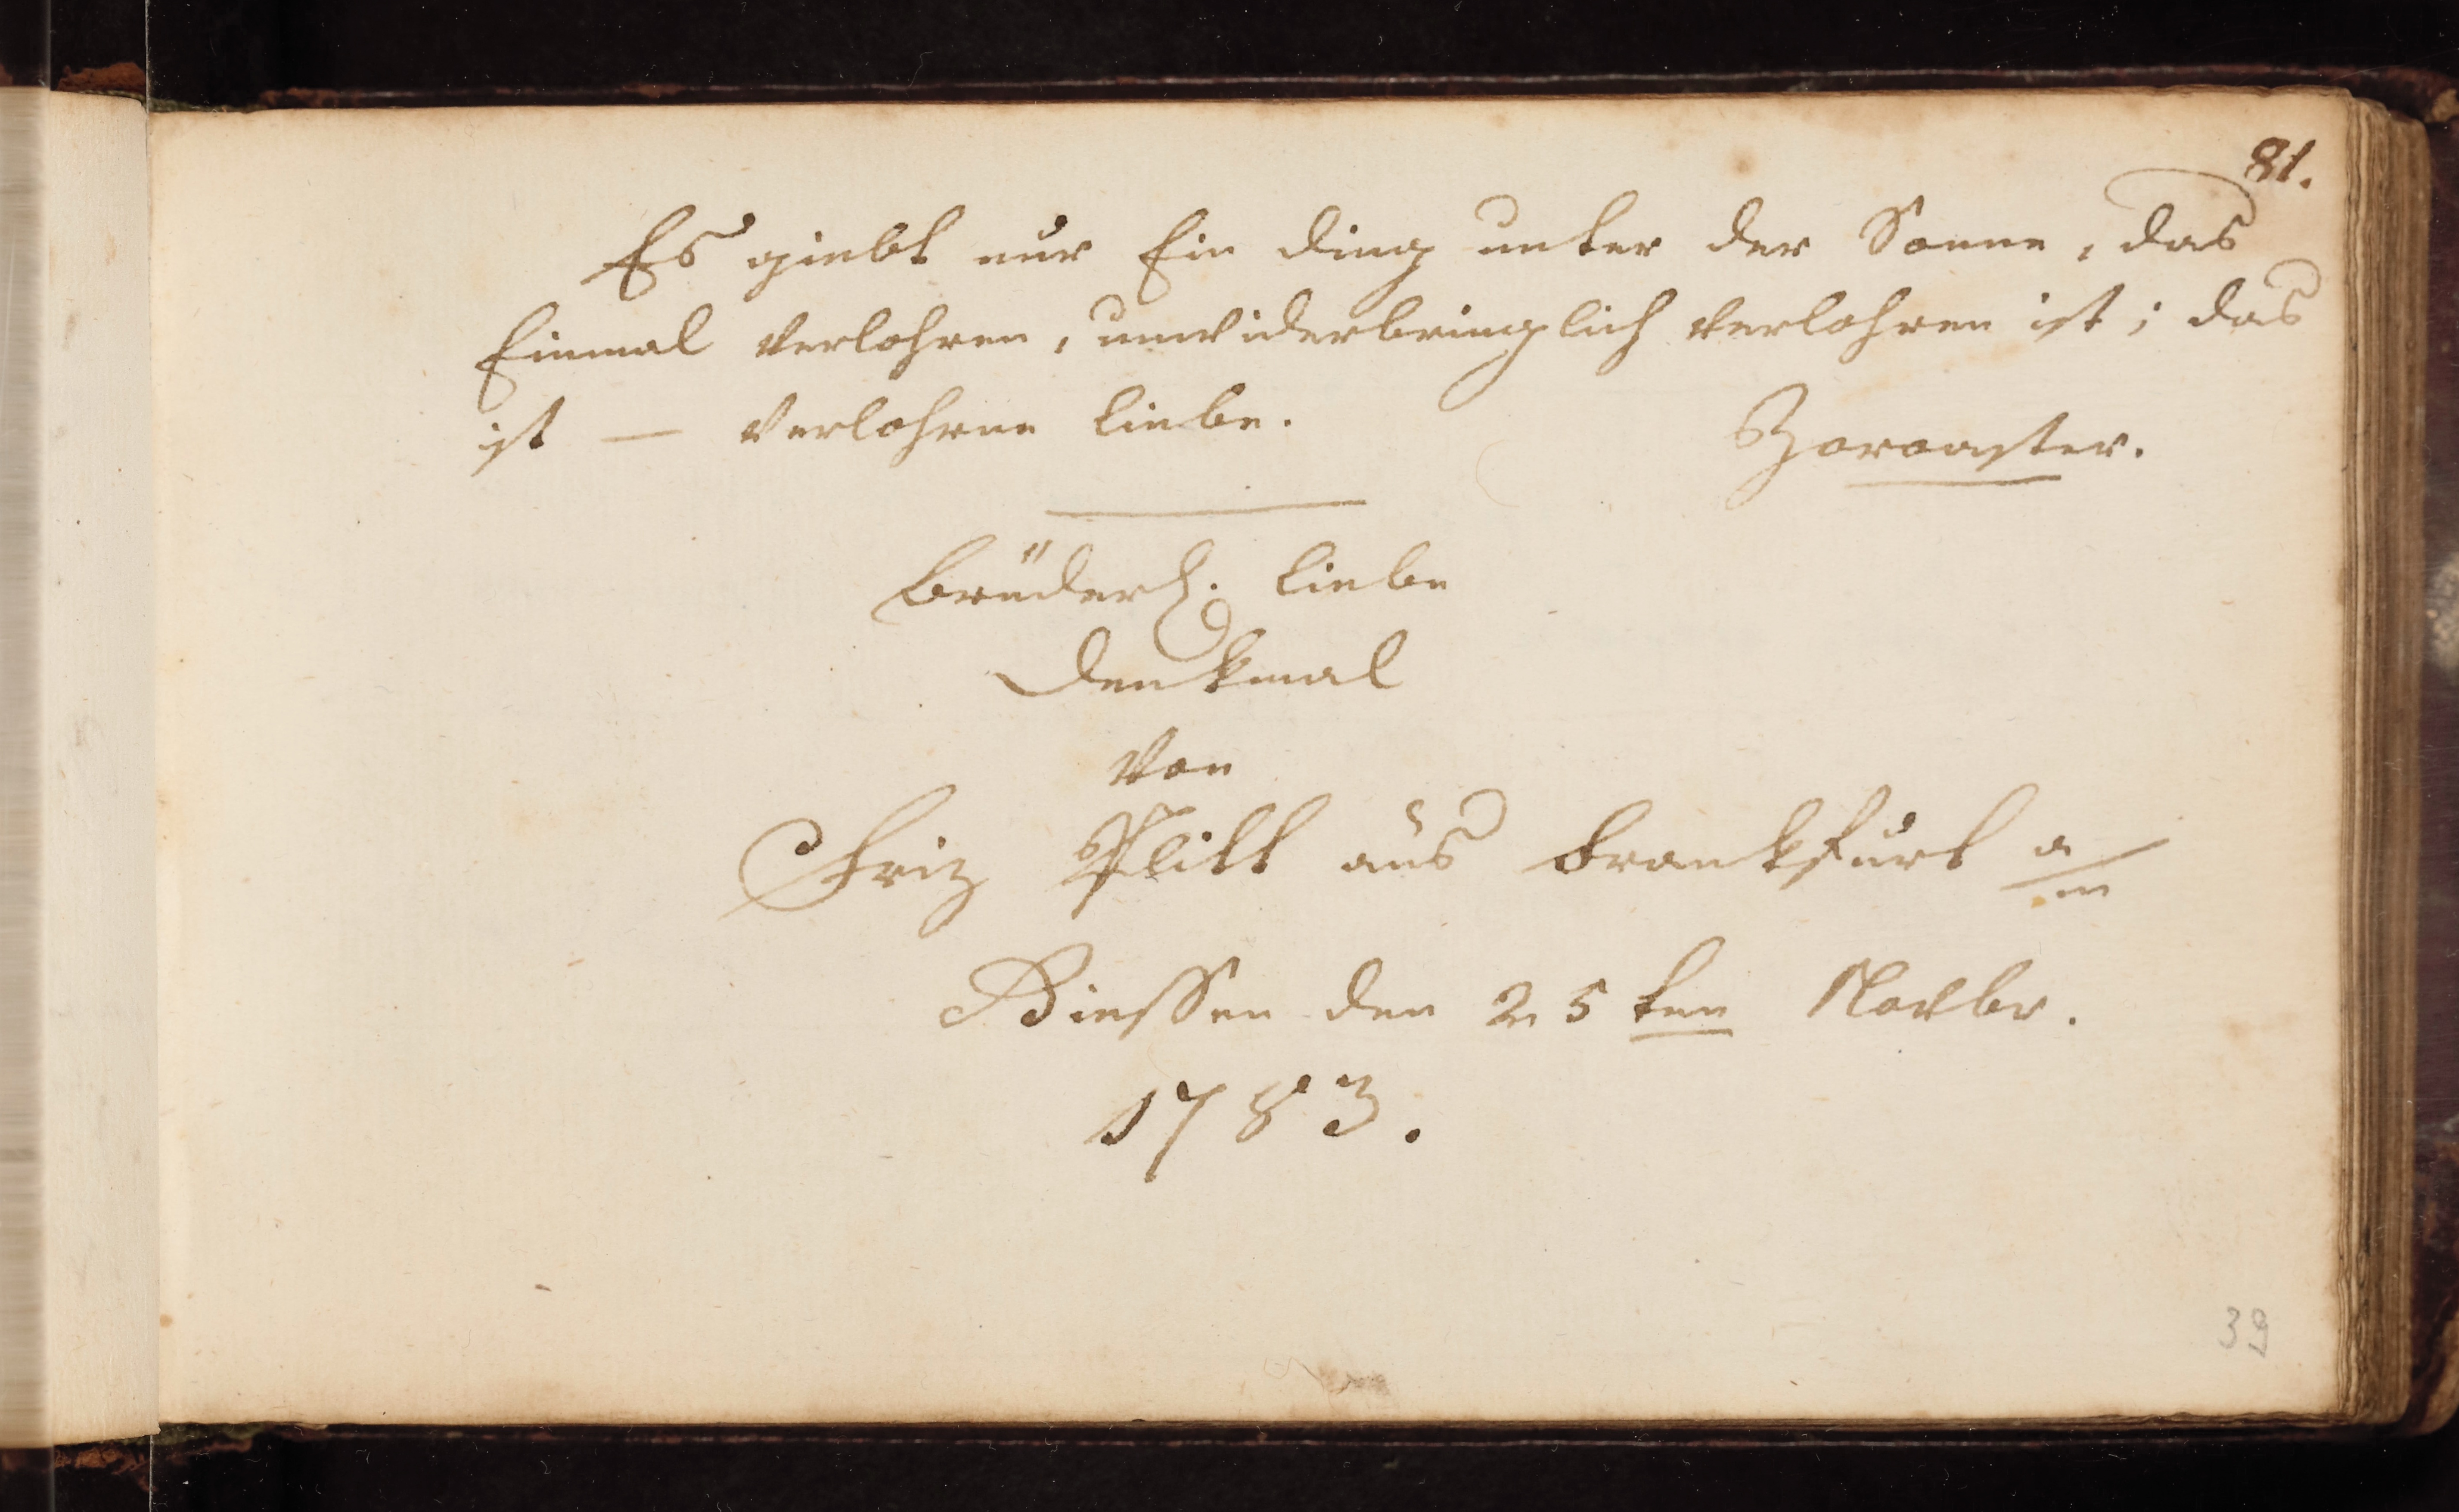 81.
Es giebt nur Ein ding unter der Sonne, das
Einmal verlohren, unwiderbringlich verlohren ist; das
ist — verlohrne liebe.
Zoroaster.
brüderl. liebe
Denkmal
von
Friz Plitt aus frankfurt a/m
Giessen den 25ten Novbr.
1783.
39